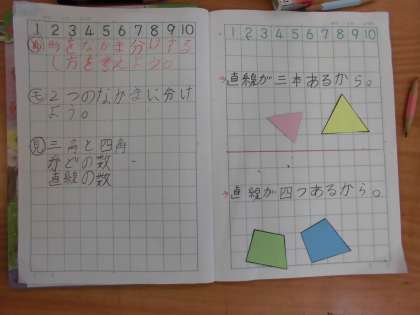 1 2 3 4 5 6 7 8 9 10
め 形をなかま分けする
し方を考えよう。
モ 2つのなかまに分け
よう。
見 三角と四角
かどの数
直線の数
1 2 3 4 5 6 7 8 9 10
直線が三本あるから。
直線が四つあるから。